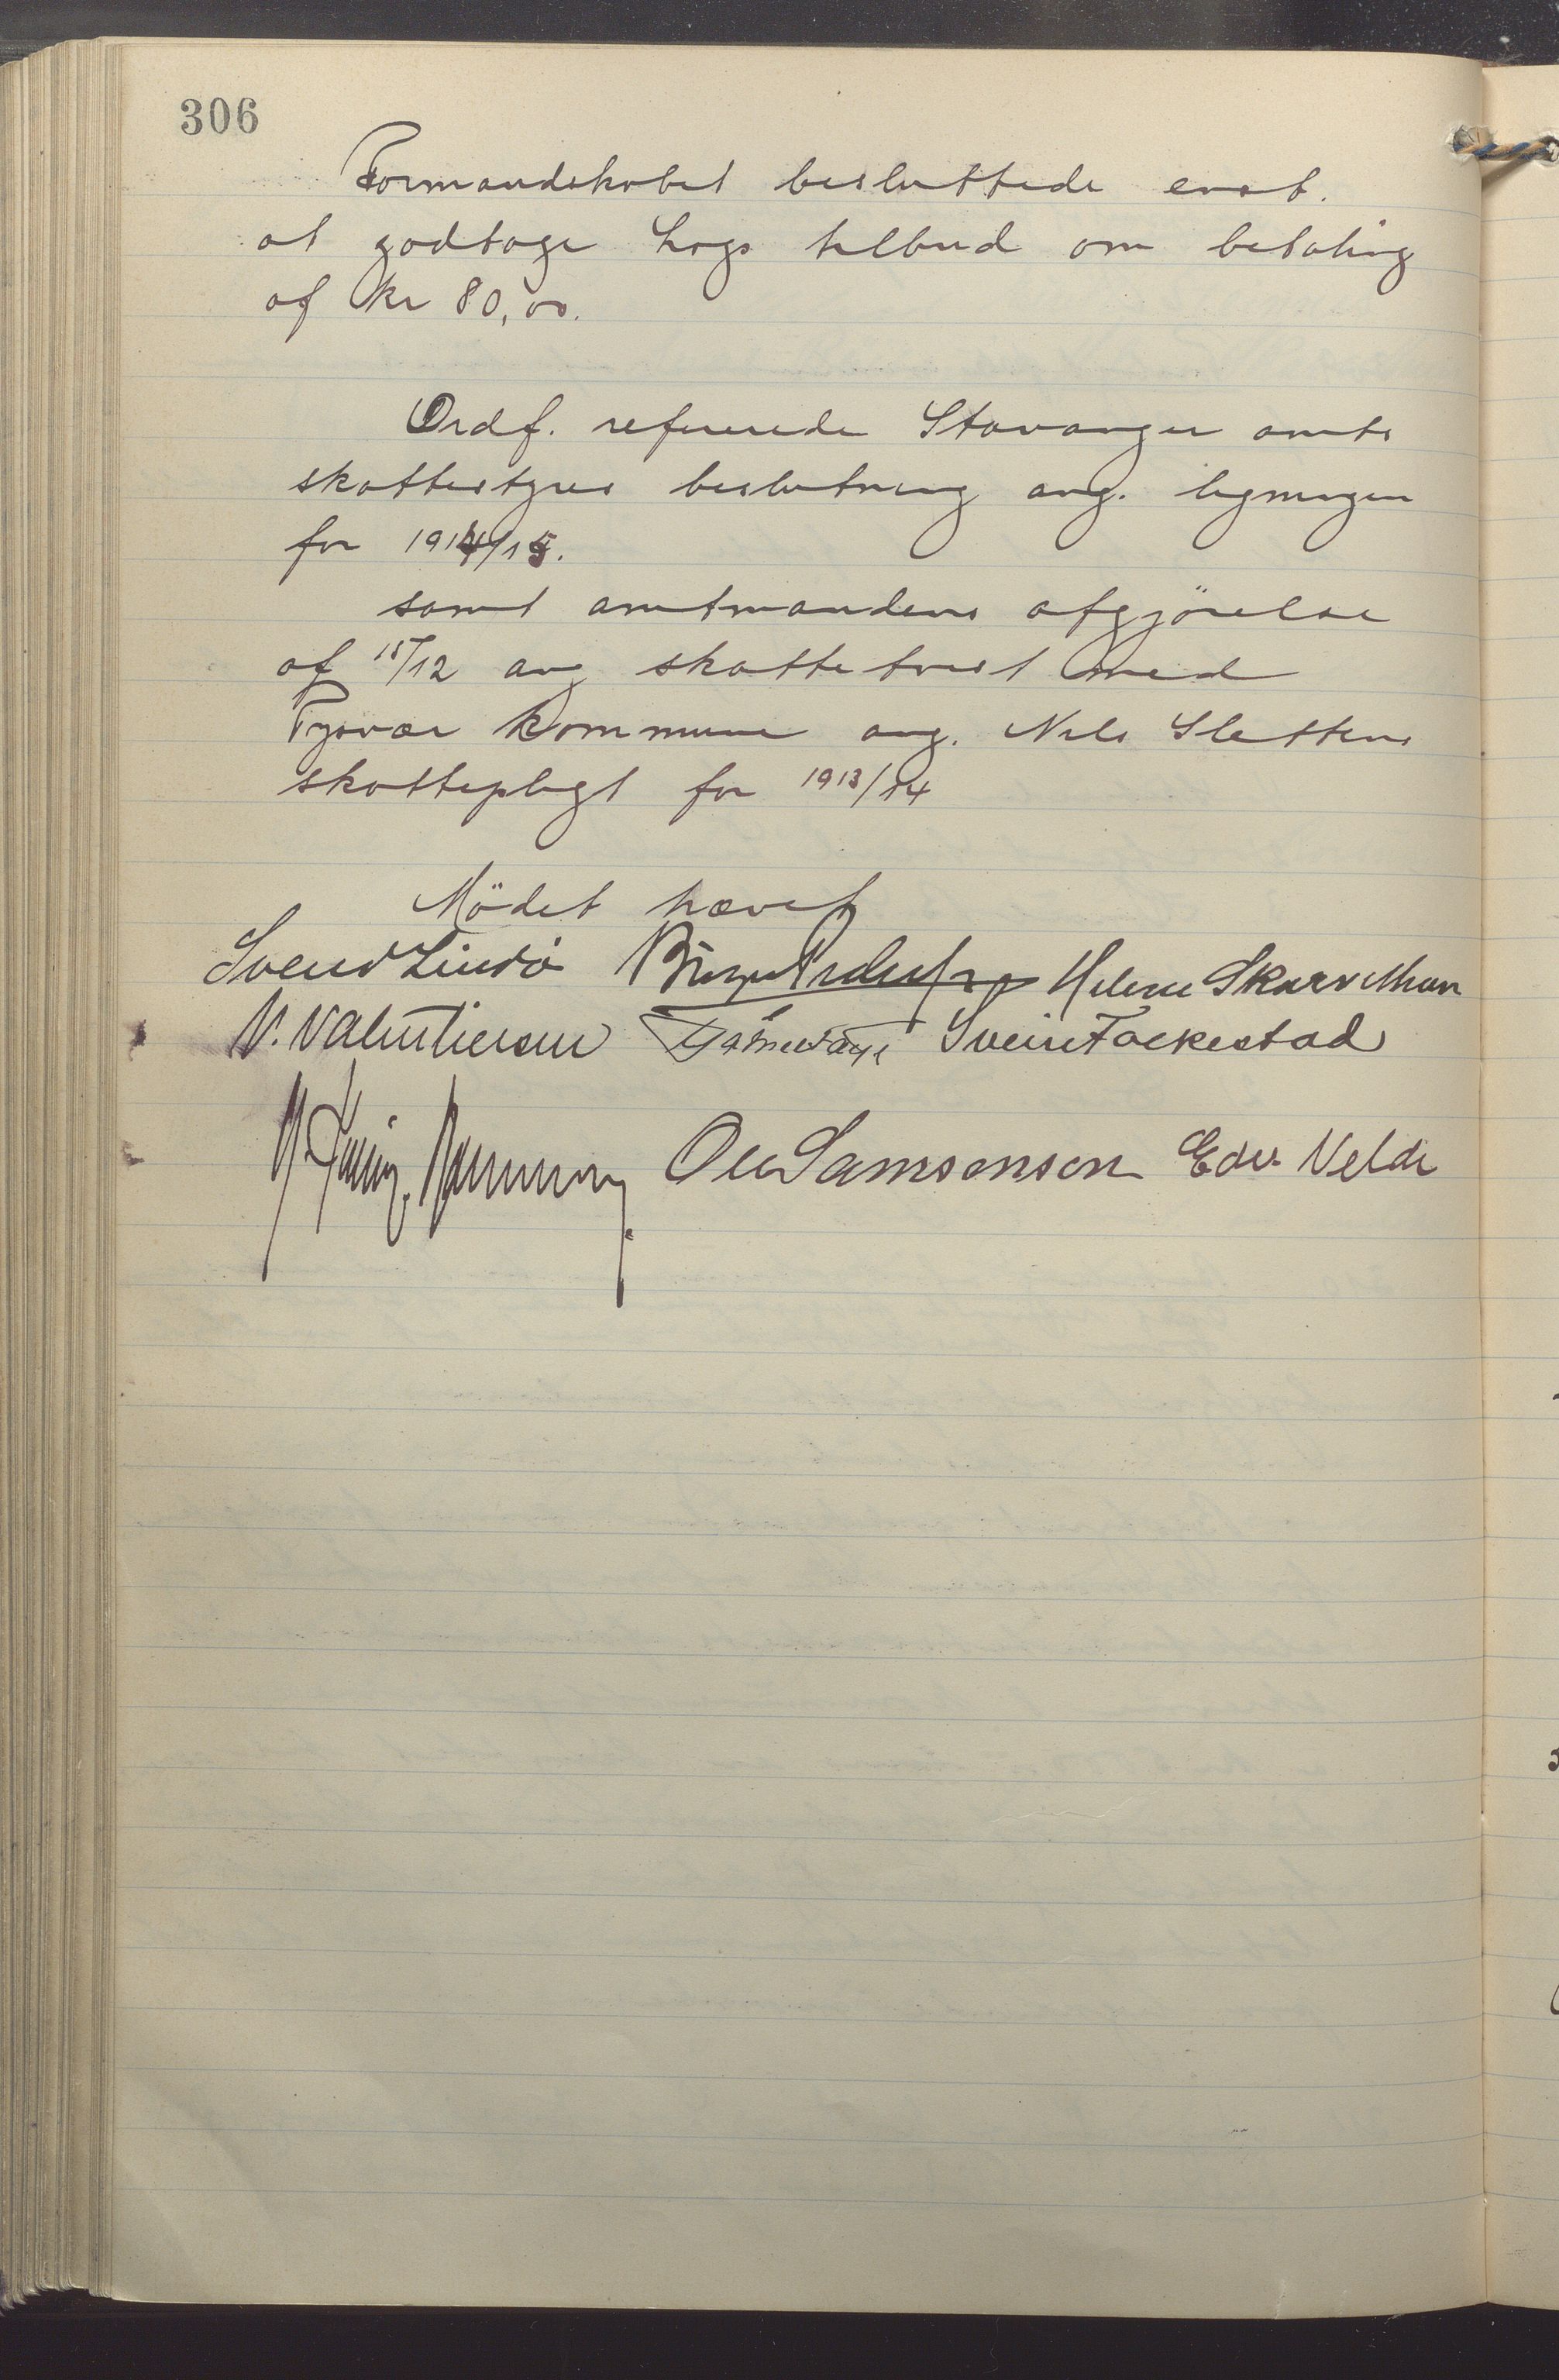 306
Formandskabet besluttede enst.
at godtage hogs tilbud om betaling
af kr 80,00.
Ordf. refererede Stavanger amts
skattestyres beslutning ang. ligningen
for 1914/15.
samt amtmandens afgjörelse
af 15/12 ang skattetvist med
Tysvær kommune ang. Nils Slettens
skattepligt for 1913/14
Mödet hævet
Svend Lindö Helene Skarv
N. Valentiensen Svein Fockestad
Ole Samsonson Edv. Velde